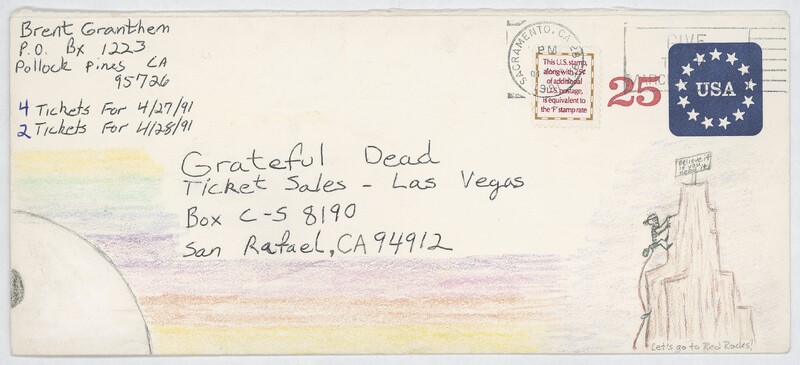 Brent Granthem
P.O. Bx 1223
Pollock Pines CA
95726
4 Tickets For 4/27/91
2 Tickets For 4/28/91
Grateful Dead
Ticket Sales - Las Vegas
Box C-S 8190
San Rafael, CA 94912
SACRAMENTO, CA
PM
This U.S. stamp,
along with 25¢
of additional
U.S. postage,
is equivalent to
the 'F' stamp rate
GIVE
25
USA
Believe it
if you
need it!
Let's go to Red Rocks!